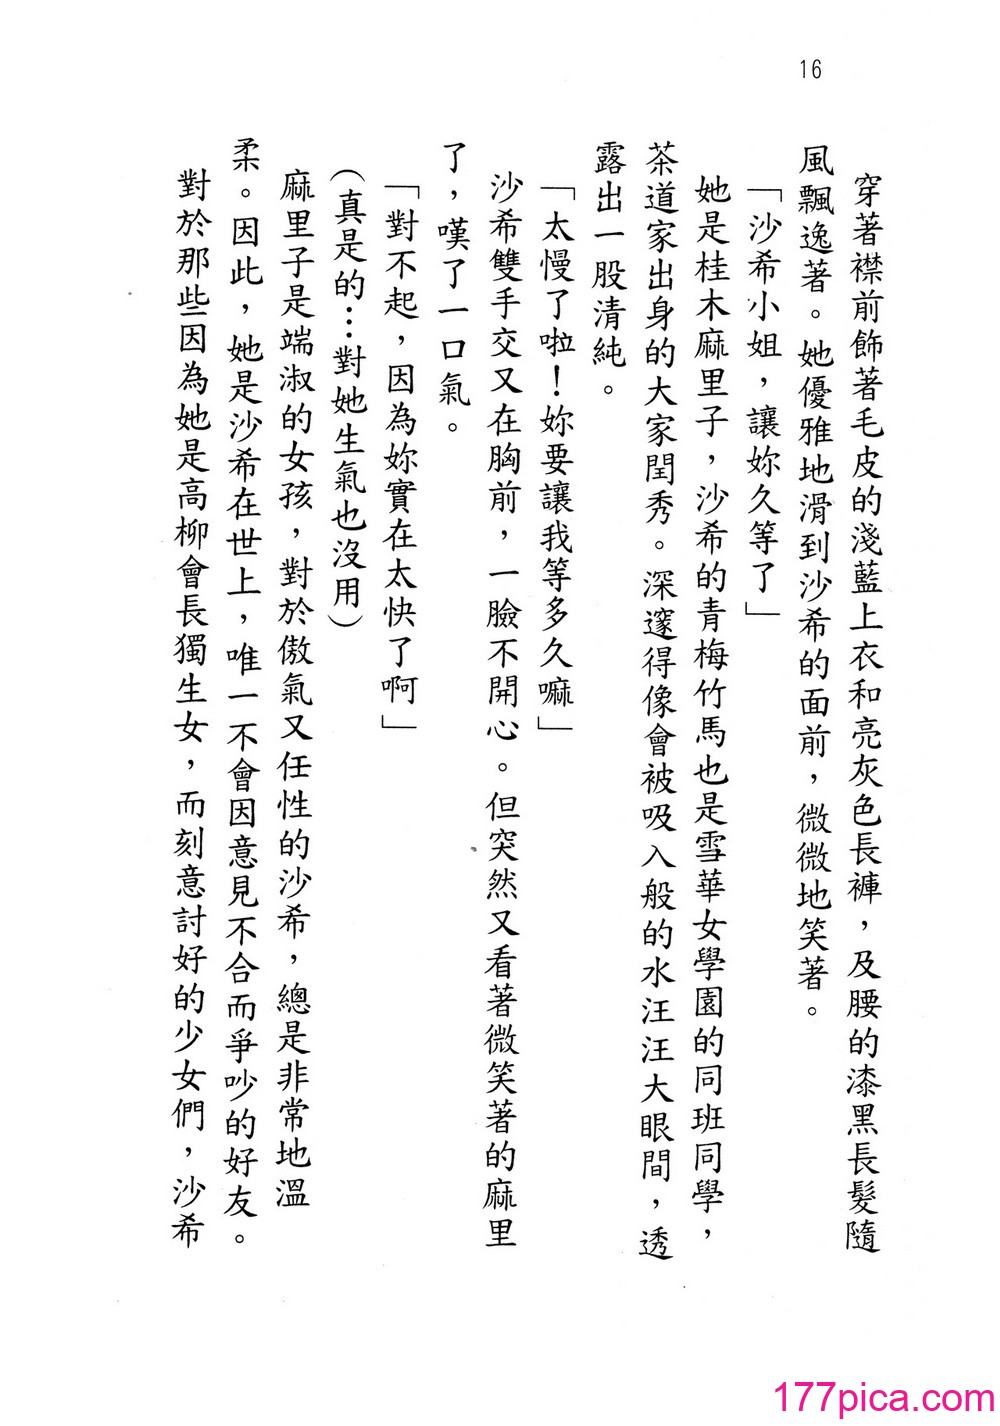 16
穿著襟前飾著毛皮的淺藍上衣和亮灰色長褲，及腰的漆黑長髮隨
風飄逸著。她優雅地滑到沙希的面前，微微地笑著。
「沙希小姐，讓妳久等了」
她是桂木麻里子，沙希的青梅竹馬也是雪華女學園的同班同學，
茶道家出身的大家閏秀。深邃得像會被吸入般的水汪汪大眼間，透
露出一股清純。
「太慢了啦！妳要讓我等多久嘛」
沙希雙手交叉在胸前，一臉不開心。但突然又看著微笑著的麻里
了，嘆了一口氣。
「對不起，因為妳實在太快了啊」
(真是的…對她生氣也沒用)
麻里子是端淑的女孩，對於傲氣又任性的沙希，總是非常地溫
柔。因此，她是沙希在世上，唯一不會因意見不合而爭吵的好友。
對於那些因為她是高柳會長獨生女，而刻意討好的少女們，沙希
177pica.com